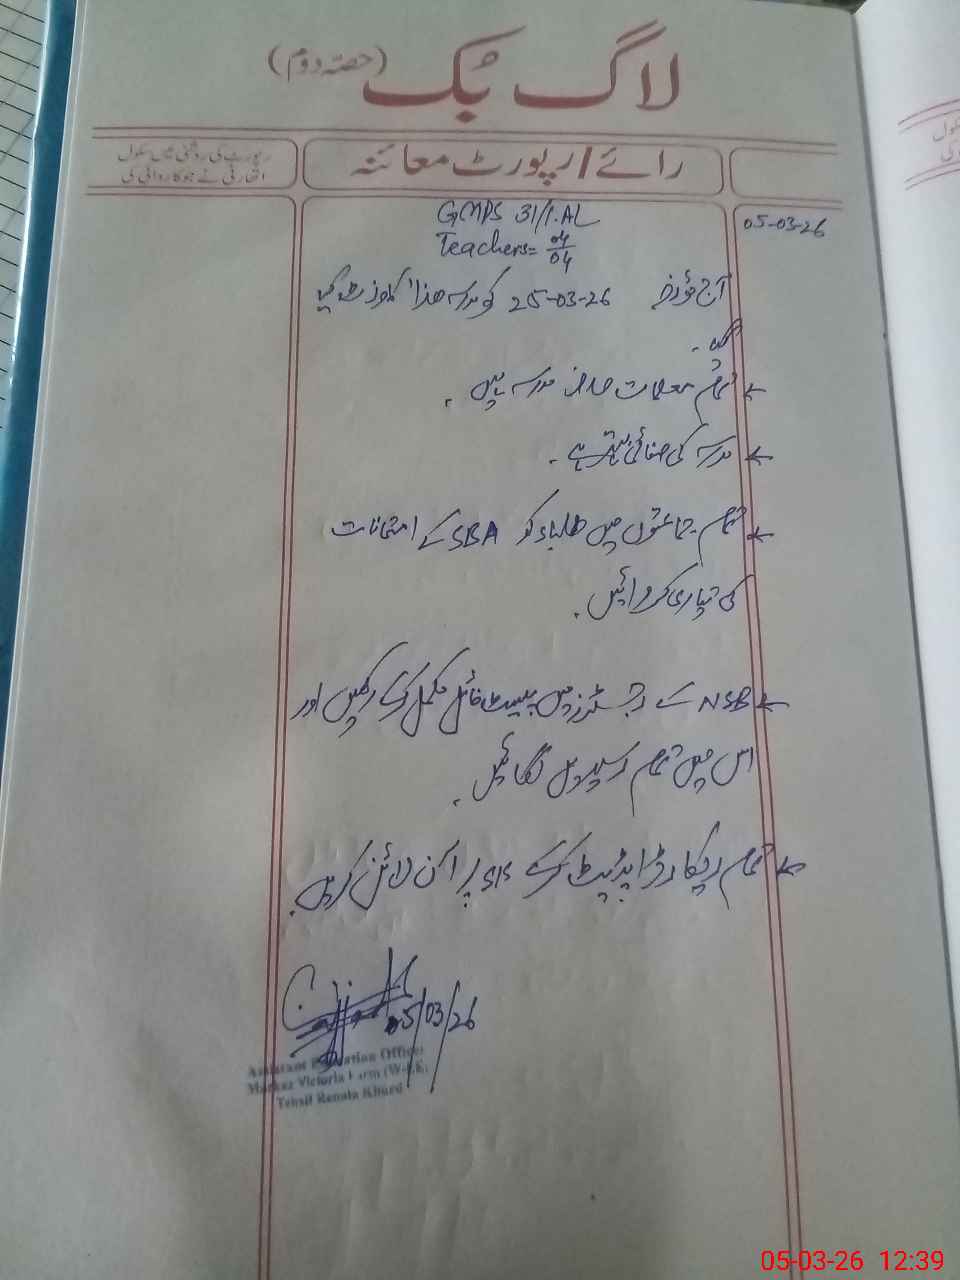 لاگ بُک (حصّہ دوم)
رائے/رپورٹ معائنہ
رپورٹ کی روشنی میں سکول
اتھارٹی نے جو کارروائی کی
05-03-26
GMPS 31/1.AL
Teachers= 04/04
آج مورخہ 25-03-26 کو مدرسہ ھذا کا وزٹ کیا
گیا۔
← تمام معلمات حاضر مدرسہ ہیں۔
← مدرسہ کی صفائی بہتر ہے۔
← تمام جماعتوں میں طلباء کو SBA کے امتحانات
کی تیاری کروائیں۔
← NSB کے رجسٹرز میں مکمل کر کے رکھیں اور
اس میں تمام رسیدیں لگائیں۔
← تمام ریکارڈ اپڈیٹ کر کے SIS پر آن لائن کریں۔
05/03/26
Assistant Education Officer
Markaz Victoria Farm (W-EE)
Tehsil Renala Khurd
05-03-26 12:39